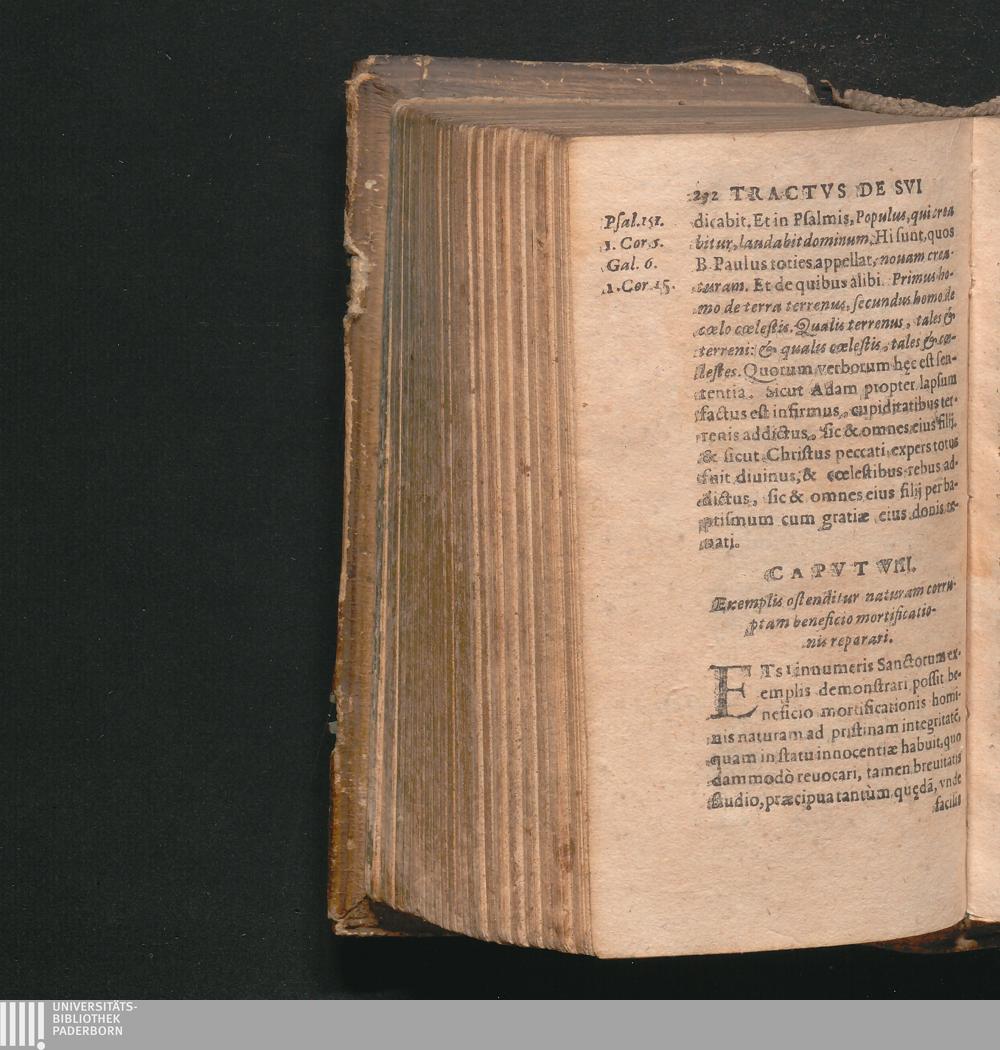 292 TRACTVS DE SVI
Psal.151.
1. Cor.5.
Gal. 6.
1. Cor.15.
dicabit. Et in Psalmis, Populus, qui crea
bitur, laudabit dominum, Hi sunt, quos
B. Paulus toties appellat, nouam crea-
turam. Et de quibus alibi. Primus ho-
mo de terra terrenus, secundus homo de
cœlo cœlestis. Qualis terrenus, tales &
terreni: & qualis cœlestis, tales & cœ-
lestes. Quorum verborum hęc est sen-
tentia. Sicut Adam propter lapsum
factus est infirmus, cupiditatibus ter-
renis addictus, sic & omnes eius filij.
& sicut Christus peccati expers totus
fuit diuinus, & cœlestibus rebus ad-
dictus, sic & omnes eius filij per ba-
ptismum cum gratiæ eius donis re-
nati.
CAPVT VIII.
Exemplis ostenditur naturam corru-
ptam beneficio mortificatio-
nis reparari.
ETsi innumeris Sanctorum ex-
emplis demonstrari possit be-
neficio mortificationis homi-
nis naturam ad pristinam integritatē,
quam in statu innocentiæ habuit, quo
dammodò reuocari, tamen breuitatis
studio, præcipua tantùm quędā, vnde
facilis
UNIVERSITÄTS-
BIBLIOTHEK
PADERBORN